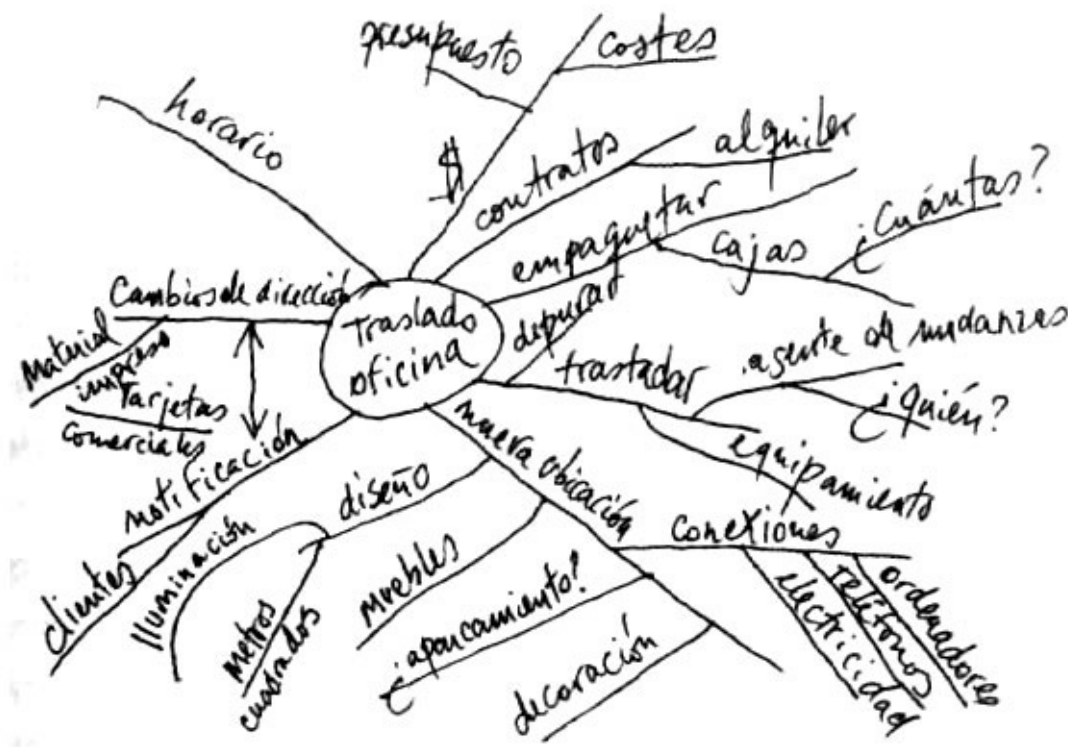 Traslado
oficina
horario
$
presupuesto
costes
contratos
alquiler
empaquetar
cajas
¿Cuántas?
depurar
trastadar
agente de mudanzas
¿Quién?
equipamiento
nueva ubicación
conexiones
ordenadores
teléfonos
electricidad
decoración
¿aparcamiento?
muebles
diseño
metros
cuadrados
Iluminación
notificación
clientes
Cambios de dirección
Material
impreso
Tarjetas
comerciales